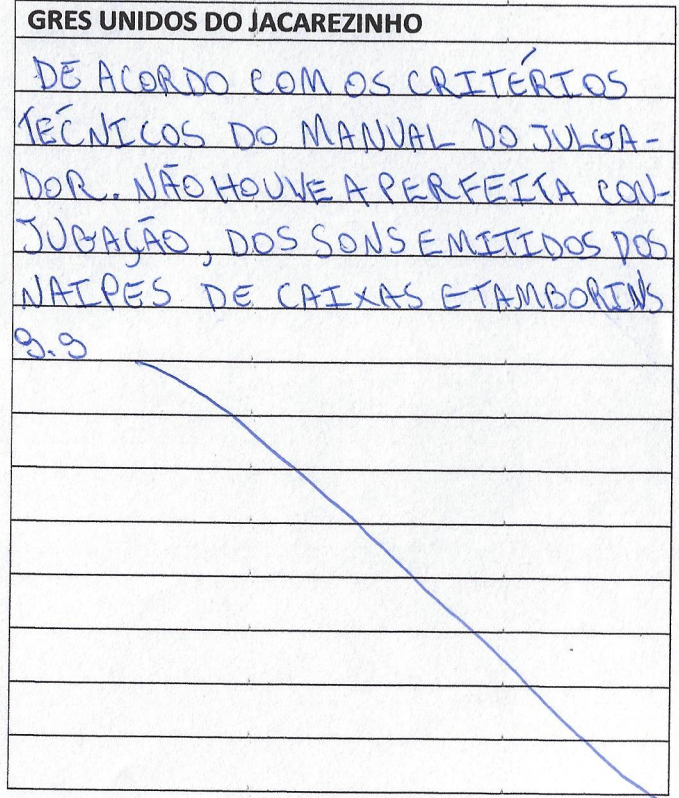 GRES UNIDOS DO JACAREZINHO
DE ACORDO COM OS CRITÉRIOS
TÉCNICOS DO MANUAL DO JULGA-
DOR. NÃO HOUVE A PERFEITA CON-
JUGAÇÃO, DOS SONS EMITIDOS DOS
NAIPES DE CAIXAS E TAMBORINS
9.9